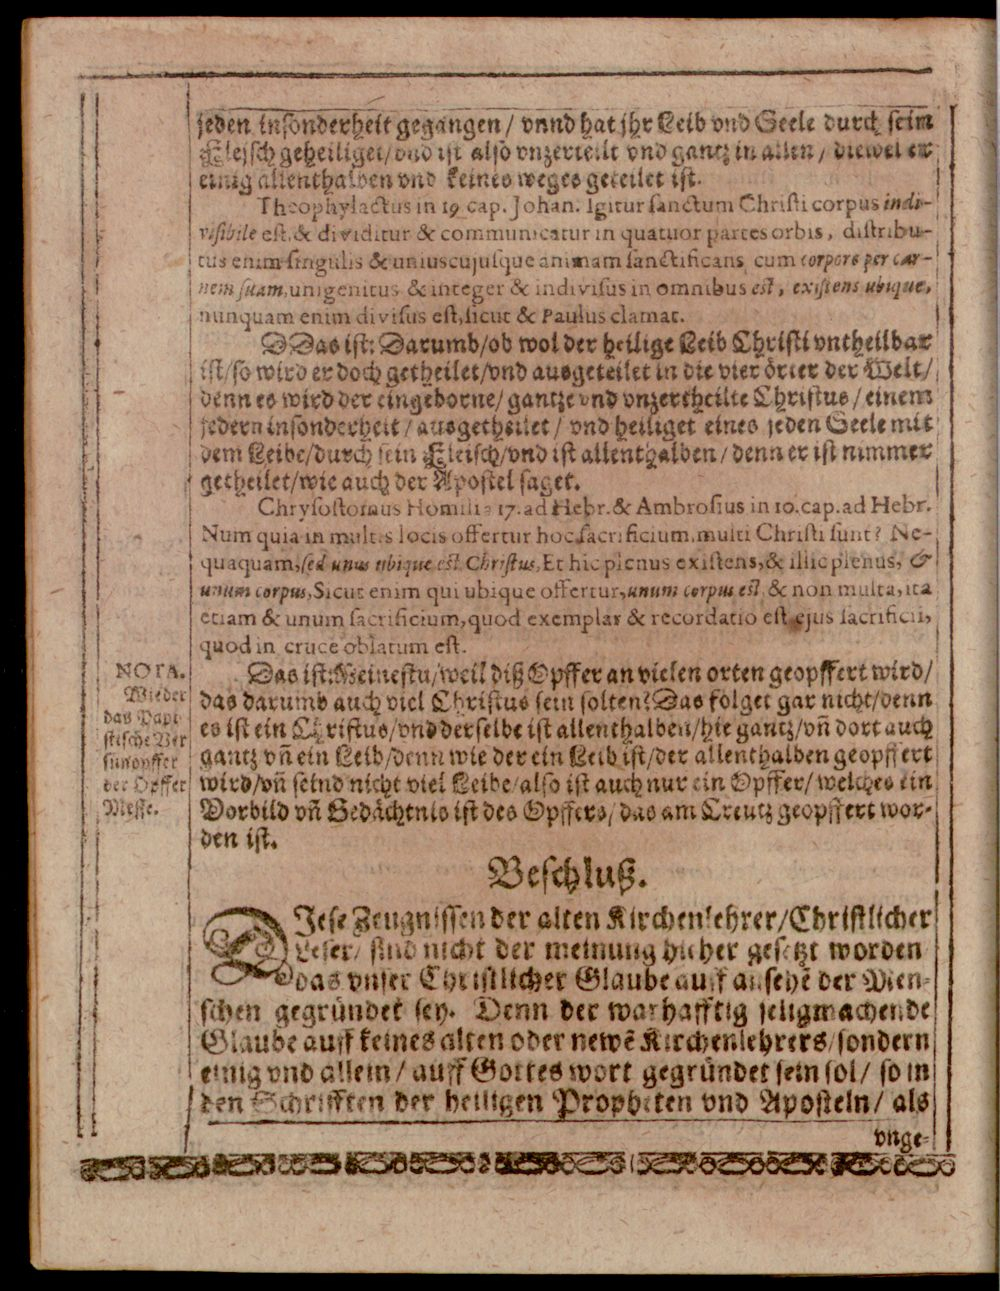 jeden insonderheit gegangen/ vnnd hat jhr Leib vnd Seele durch sein
Fleisch geheiliget/vnd ist also vnzerteilt vnd gantz in allen/ diewel er
einig allenthalben vnd keines weges geteilet ist.
Theophylactus in 19 cap. Johan. Igitur sanctum Christi corpus indi-
visibile est, & dividitur & communicatur in quatuor partes orbis, distribu-
tus enim singulis & uniuscujusque animam sanctificans cum corpore per car-
nem suam, unigenitus & integer & indivisus in omnibus est, existens ubique,
nunquam enim divisus est, sicut & Paulus clamat.
DDas ist: Darumb/ob wol der heilige Leib Christi vntheilbar
ist/so wird er doch getheilet/vnd ausgeteilet in die vier örter der Welt/
denn es wird der eingeborne/ gantze vnd vnzertheilte Christus/ einem
jedern insonderheit/ ausgetheilet/ vnd heiliget eines jeden Seele mit
dem Leibe/durch sein Fleisch/vnd ist allenthalben/ denn er ist nimmer
getheilet/wie auch der Apostel saget.
Chrysostomus Homilia 17. ad Hebr. & Ambrosius in 10. cap. ad Hebr.
Num quia in multis locis offertur hoc sacrificium, multi Christi sunt? Ne-
quaquam, sed unus ubique est Christus, Et hic plenus existens, & illic plenus, &
unum corpus, Sicut enim qui ubique offertur, unum corpus est & non multa, ita
etiam & unum sacrificium, quod exemplar & recordatio est ejus sacrificii,
quod in cruce oblatum est.
Das ist: Meinestu/weil diß Opffer an vielen orten geopffert wird/
das darumb auch viel Christus sein solten? Das folget gar nicht/denn
es ist ein Christus/vnd derselbe ist allenthalben/hie gantz/vñ dort auch
gantz vñ ein Leib/denn wie der ein Leib ist/der allenthalben geopffert
wird/vñ seind nicht viel Leibe/also ist auch nur ein Opffer/ welches ein
Vorbild vñ Gedächtnis ist des Opffers/ das am Creutz geopffert wor-
den ist.
NOTA.
Wieder
das Papi-
stische Ver
sünopffer
der Opffer
Messe.
Beschluß.
DIese Zeugnissen der alten Kirchenlehrer/Christlicher
Leser/ sind nicht der meinung hieher gesetzt worden
das vnser Christlicher Glaube auff ansehẽ der Men-
schen gegründet sey. Denn der warhafftig seligmachende
Glaube auff keines alten oder newẽ Kirchenlehrers/sondern
einig vnd allein/ auff Gottes wort gegründet sein sol/ so in
den Schrifften der heiligen Propheten vnd Aposteln/ als
vnge-